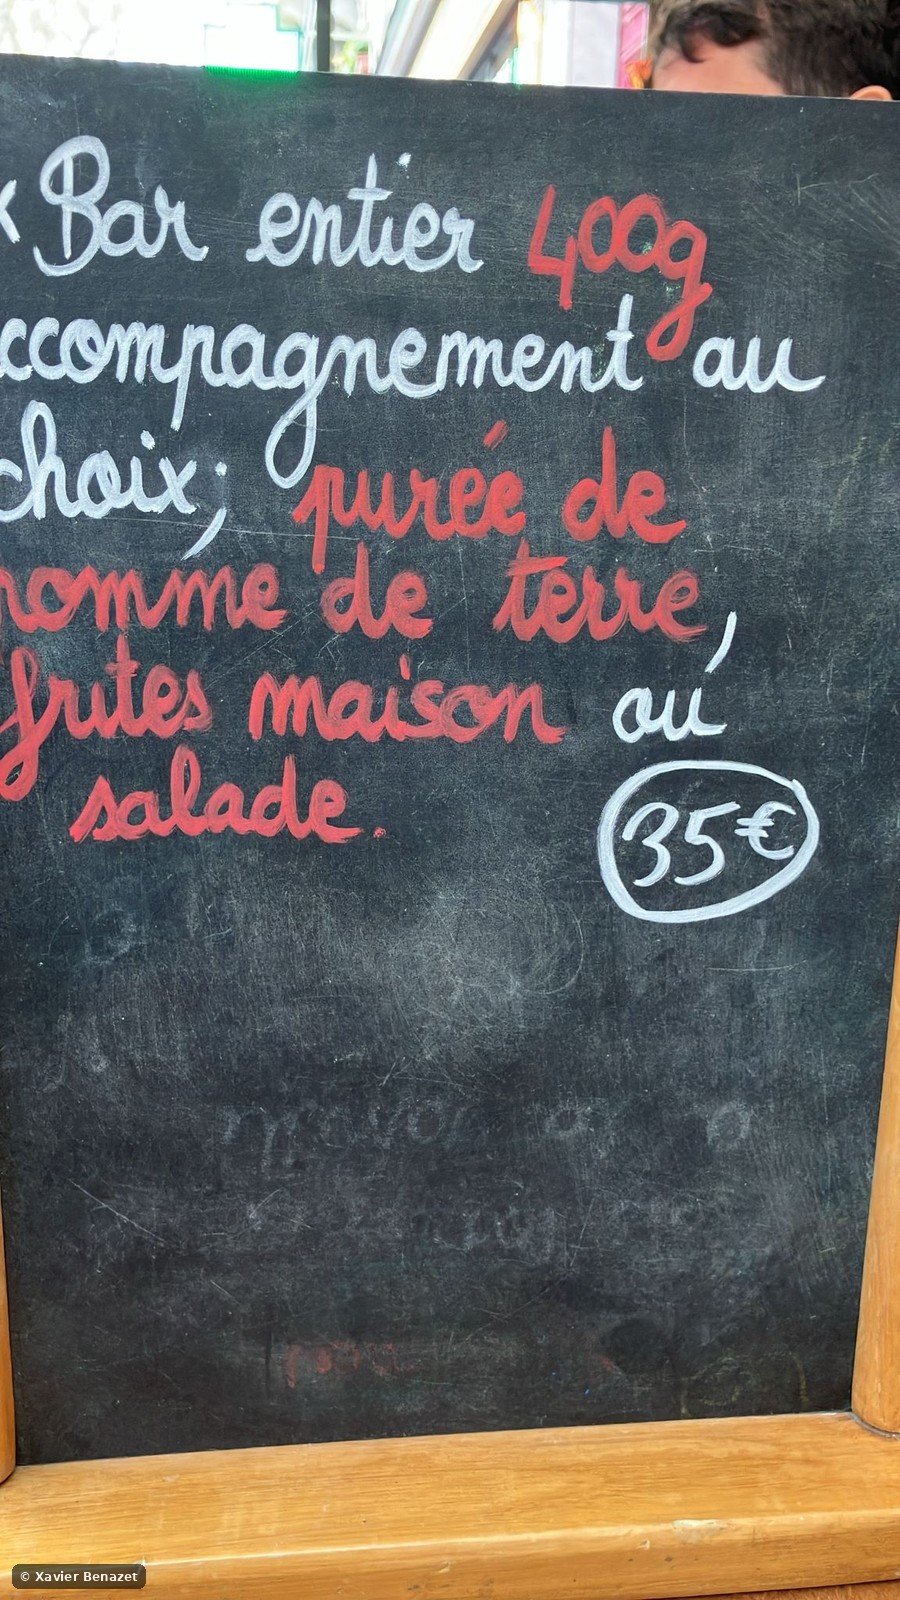 * Bar entier 400g
accompagnement au
choix; purée de
pomme de terre,
frites maison où
salade.
35€
© Xavier Benazet